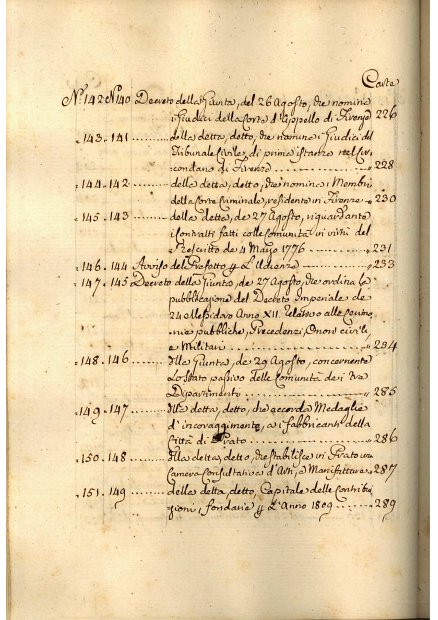 Carte
N.° 142 N.° 140 Decreto della Giunta, del 26 Agosto, che nomina
i Giudici della Corte d'Appello di Firenze 226
143. 141 ......... della detta, detto, che nomina i Giudici del
Tribunale Civile, di prima istanza nel Cir,
condario di Firenze ......... 228
144. 142 ......... della detta, detto, che nomina i Membri
della Corte Criminale, residente in Firenze 230
145. 143 ......... della detta, de 27 Agosto, riguardante
i Contratti fatti colle Comunità in virtù del
Rescritto de 4 Mayo 1776 ......... 231
146. 144 Avviso del Prefetto 233
147. 145 Decreto della Giunta, de 27 Agosto, che ordina la
pubblicazione del Decreto Imperiale de
24 Messidoro Anno XII. Relativo alle Cerimo,
nie pubbliche, Precedenze, Onori civili
e Militari ......... 234
148. 146 ......... della Giunta, de 29 Agosto, concernente
Lo Stato passivo delle Comunità dei tre
Dipartimenti ......... 285
149. 147 ......... della detta, detto, che accorda Medaglie
d'incoraggimento, a i fabbricanti della
Città di Prato ......... 286
150. 148 ......... della detta, detto, che stabilisce in Prato una
Camera Consultativa d'Arti, e Manifatture 287
151. 149 ......... della detta, detto, Capitale delle Contribu,
zioni, fondarie L'Anno 1809 ......... 289